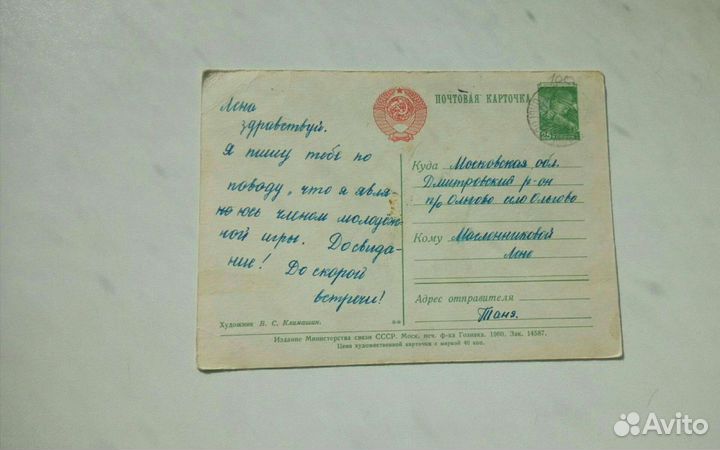 ПОЧТОВАЯ КАРТОЧКА
Лена
здравствуй.
Я пишу тебе по
поводу, что я явля-
юсь членом молодеж-
ной игры. До свида-
ние! До скорой
встречи!
Художник В. С. Климашин.
**
Куда Московская обл.
Дмитровский р-он
п/о Ольгово село Ольгово
Кому Маслонниковой
Лене
Адрес отправителя
Таня.
Издание Министерства связи СССР. Моск. печ. ф-ка Гознака. 1960. Зак. 14587.
Цена художественной карточки с маркой 40 коп.
Avito